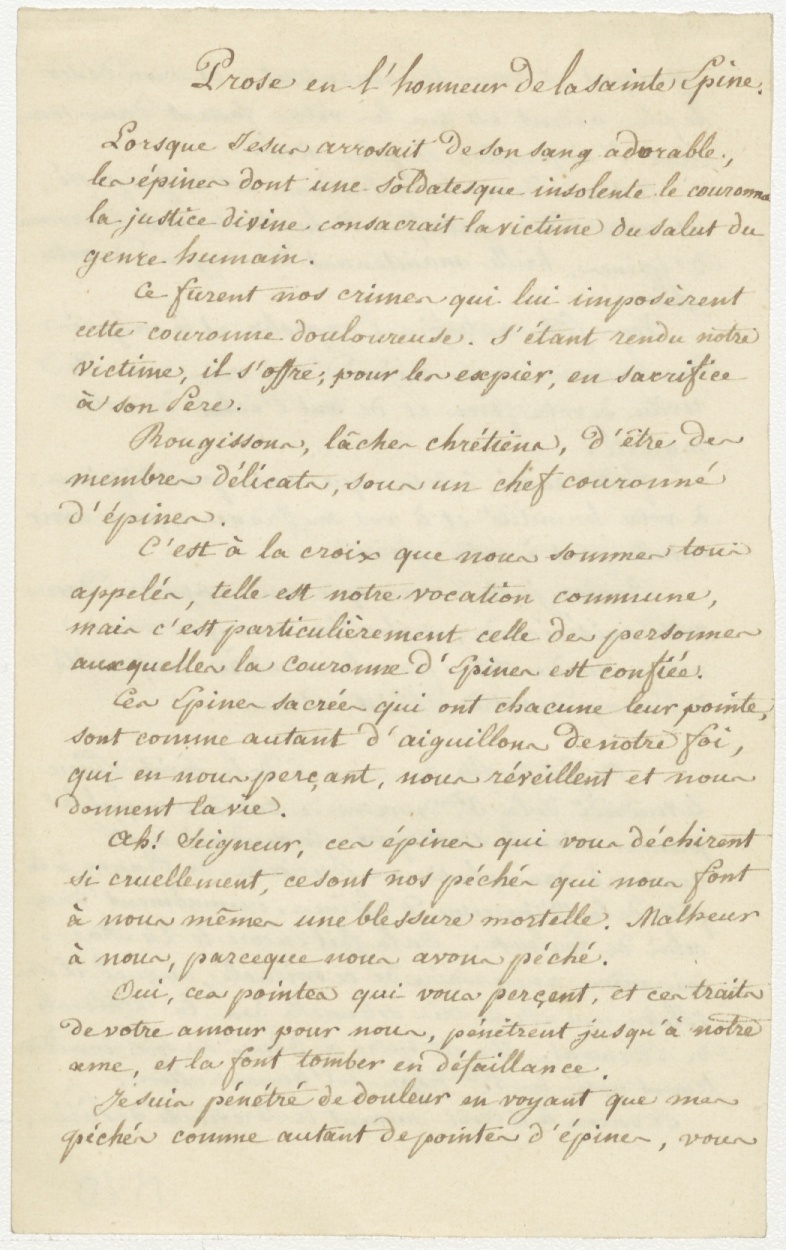 Prose en l'honneur de la sainte Epine.
Lorsque Jesus arrosait de son sang adorable,
les épines dont une soldatesque insolente le couronna
la justice divine consacrait la victime du salut du
genre humain.
Ce furent nos crimes qui lui imposèrent
cette couronne douloureuse. S'étant rendu notre
victime, il s'offre; pour les expier, en sacrifice
à son Père.
Rougissons, lâches chrétiens, d'être des
membres délicats, sous un chef couronné
d'épines.
C'est à la croix que nous sommes tous
appelés, telle est notre vocation commune,
mais c'est particulièrement celle des personnes
auxquelles la couronne d'Epines est confiée.
Ces Epines sacrées qui ont chacune leur pointe,
sont comme autant d'aiguillons de notre foi,
qui en nous perçant, nous réveillent et nous
donnent la vie.
Ah! Seigneur, ces épines qui vous déchirent
si cruellement, ce sont nos péchés qui nous font
à nous mêmes une blessure mortelle. Malheur
à nous, parceque nous avons péché.
Oui, ces pointes qui vous perçent, et ces traits
de votre amour pour nous, pénètrent jusqu'à notre
ame, et la font tomber en défaillance.
Je suis pénétré de douleur en voyant que mes
péchés comme autant de pointes d'épines, vous